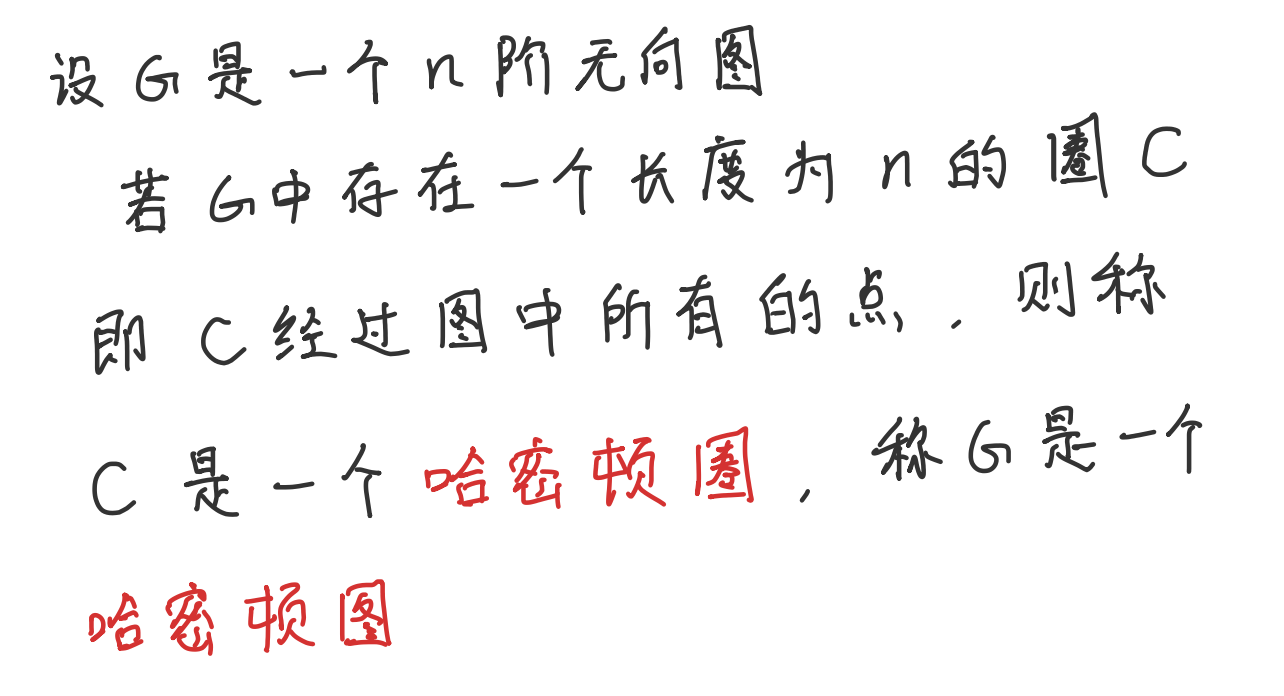 设G是一个n阶无向图
若G中存在一个长度为n的圈C
即C经过图中所有的点,则称
C是一个哈密顿圈,称G是一个
哈密顿图